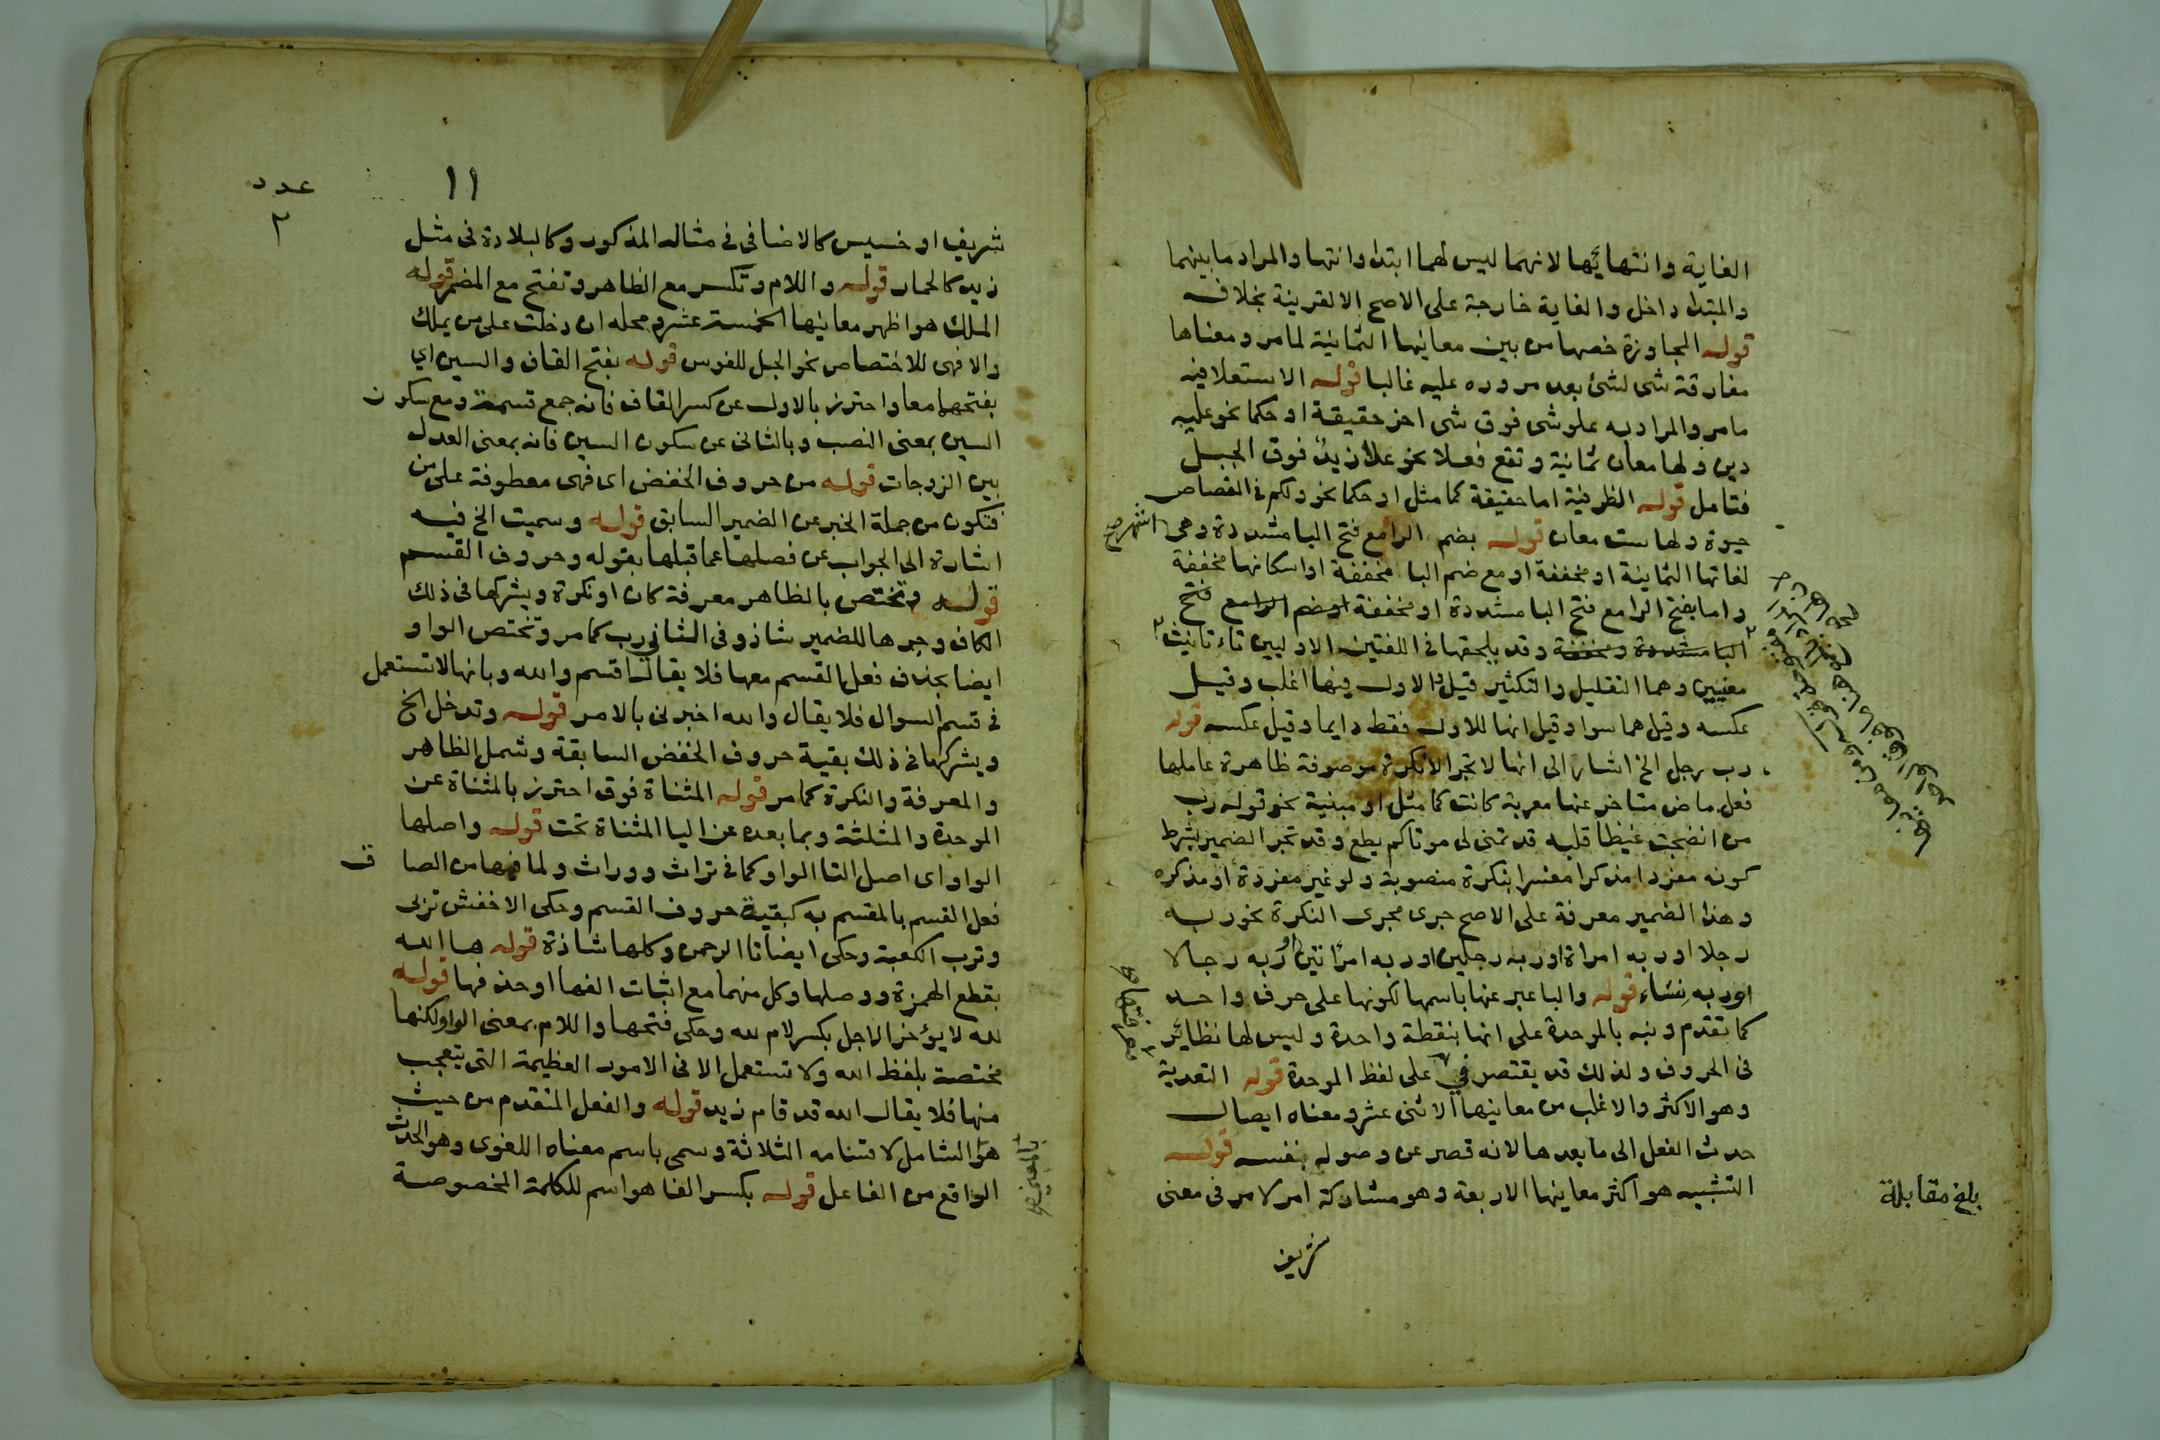 الغاية وانتهائها لانهما ليس لهما ابتدا وانتها والمراد ما بينهما
والمبتدا داخل والغاية خارجة على الاصح الا لقرينة بخلاف
قوله المجاوزة خصها من بين معانيها الثمانية لما مر ومعناها
مفارقة شى لشئ بعد مروره عليه غالبا قوله الاستعلا فيه
ما مر والمراد به علو شى فوق شى اخر حقيقة او حكما نحو عليه
دين ولها معان ثمانية وتقع فعلا نحو علا زيد فوق الجبل
فتامل قوله الظرفية اما حقيقة كما مثل او حكما نحو ولكم في القصاص
حيوة ولها ست معان قوله بضم الرا مع فتح البا مشددة وهى اشهر صح
لغاتها الثمانية او مخففة او مع ضم البا مخففة او اسكانها مخففة
واما بفتح الرا مع فتح البا مشددة او مخففة او ضم الرا مع فتح
البا مشددة ومخففة وقد يلحقها في اللغتين الاوليين تاء تانيث
معنيين وهما التقليل والتكثير قيل والاول فيها اغلب وقيل
عكسه وقيل هما سوا وقيل انها للاول فقط دايما وقيل عكسه قوله
رب رجل الخ اشار الى انها لا تجر الا نكرة موصوفة ظاهرة عاملها
فعل ماض متاخر عنها معربة كانت كما مثل او مبنية نحو قوله رب
من انضجت غيظا قلبه قد تمنى لى موتا كم يطع وقد تجر الضمير بشرط
كونه مفردا مذكرا مفسرا بنكرة منصوبة ولو غير مفردة او مذكره
وهذا الضمير معرفة على الاصح جرى مجرى النكرة نحو ربه
رجلا او ربه امراة او ربه رجلين او ربه امراتين او ربه رجالا
او ربه نساء قوله والبا عبر عنها باسمها لكونها على حرف واحد
كما تقدم ونبه بالموحدة على انها بنقطة واحدة وليس لها نظائر
فى الحروف ولذلك قد يقتصر في على لفظ الموحدة قوله التعدية
وهو الاكثر والاغلب من معانيها الاثنى عشر ومعناه ايصال
حدث الفعل الى ما بعدها لانه قصر عن وصوله بنفسه قوله
التشبيه هو اكثر معانيها الاربعة وهو مشاركة امر لامر فى معنى
شريف
بلغ مقابلة
١١
عدد
٢
شريف او خسيس كالاضافى فى مثاله المذكور وكالبلادة فى مثل
زيد كالحمار قوله واللام وتكسر مع الظاهر وتفتح مع المضمر قوله
الملك هو اظهر معانيها الخمسة عشر ومحله ان دخلت على من يملك
والا فهى للاختصاص نحو الجل للفرس قوله بفتح القاف والسين اي
بفتحهما معا واحترز بالاول عن كسر القاف فانه جمع قسمة ومع سكون
السين بمعنى النصب وبالثانى عن سكون السين فانه بمعنى العدل
بين الزوجات قوله من حروف الخفض اى فهى معطوفة على من
فتكون من جملة الخبر عن الضمير السابق قوله وسميت الخ فيه
اشارة الى الجواب عن فصلها عما قبلها بقوله وحروف القسم
قوله وتختص بالظاهر معرفة كان او نكرة ويشركها فى ذلك
الكاف وجرها للضمير شاذ وفى الثانى رب كما مر وتختص الواو
ايضا بحذف فعل القسم معها فلا يقال اقسم والله وبانها لا تستعمل
فى قسم السوال فلا يقال والله اخبرنى بالامر قوله وتدخل الخ
ويشركها فى ذلك بقية حروف الخفض السابقة وشمل الظاهر
والمعرفة والنكرة كما مر قوله المثناة فوق احترز بالمثناة عن
الموحدة والمثلثة وبما بعده عن اليا المثناة تحت قوله واصلها
الواو اى اصل التا الواو كما فى تراث ووراث ولما فيها من الصاق
فعل القسم بالمقسم به كبقية حروف القسم وحكى الاخفش تربى
وترب الكعبة وحكى ايضا تا الرحمن وكلها شاذة قوله ها الله
بقطع الهمزة ووصلها وكل منهما مع اثبات الفها او حذفها قوله
لله لا يؤخر الاجل بكسر لام لله وحكى فتحها واللام بمعنى الواو لكنها
مختصة بلفظ الله ولا تستعمل الا فى الامور العظيمة التى يتعجب
منها فلا يقال لله قد قام زيد قوله والفعل المتقدم من حيث
هو الشامل لاقسامه الثلاثة وسمى باسم معناه اللغوى وهو الحدث
الواقع من الفاعل قوله بكسر الفا هو اسم للكلمة المخصوصة